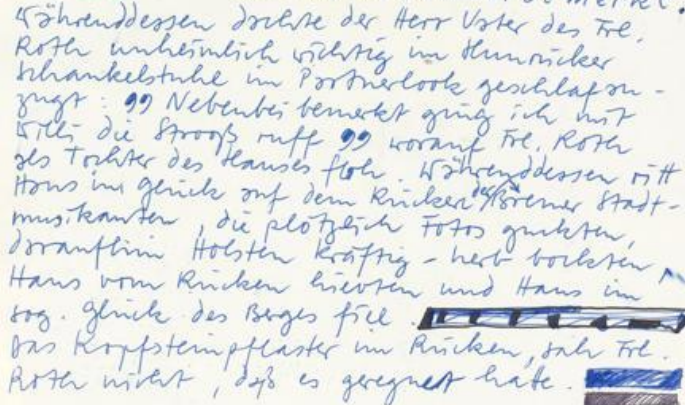 Währenddessen dachte der Herr Vater des Frl.
Roth unheimlich wichtig im Hunrücker
Schaukelstuhl im Partnerlook geschlafen-
zugt : " Nebenbei bemerkt ging ich mit
Willi die Strooß ruff " worauf Frl. Roth
als Tochter des Hauses floh. Währenddessen ritt
Hans im Glück auf dem Rücken der Bremer Stadt-
musikanten, die plötzlich Fotos guckten,
daraufhin Holsten kräftig-herb bockten,
Hans vom Rücken hievten und Hans im
sog. Glück des Berges fiel.
Das Kopfsteinpflaster im Rücken, sah Frl.
Roth nicht, daß es geregnet hatte.